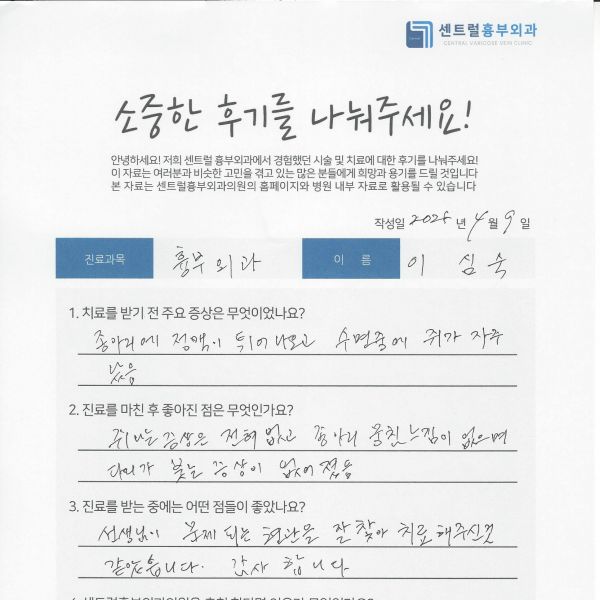 센트럴흉부외과
CENTRAL VARICOSE VEIN CLINIC
소중한 후기를 나눠주세요!
안녕하세요! 저희 센트럴 흉부외과에서 경험했던 시술 및 치료에 대한 후기를 나눠주세요!
이 자료는 여러분과 비슷한 고민을 겪고 있는 많은 분들에게 희망과 용기를 드릴 것입니다
본 자료는 센트럴흉부외과의원의 홈페이지와 병원 내부 자료로 활용될 수 있습니다
작성일 2025 년 4 월 9 일
진료과목 흉부외과 이 름 이 심 숙
1. 치료를 받기 전 주요 증상은 무엇이었나요?
종아리에 정맥이 튀어나오고 수면중에 쥐가 자주
났음
2. 진료를 마친 후 좋아진 점은 무엇인가요?
쥐나는 증상은 전혀 없고 종아리 뭉친느낌이 없으며
다리가 붓는 증상이 없어졌음
3. 진료를 받는 중에는 어떤 점들이 좋았나요?
선생님이 문제 되는 혈관을 잘 찾아 치료해주신것
같았습니다. 감사 합니다